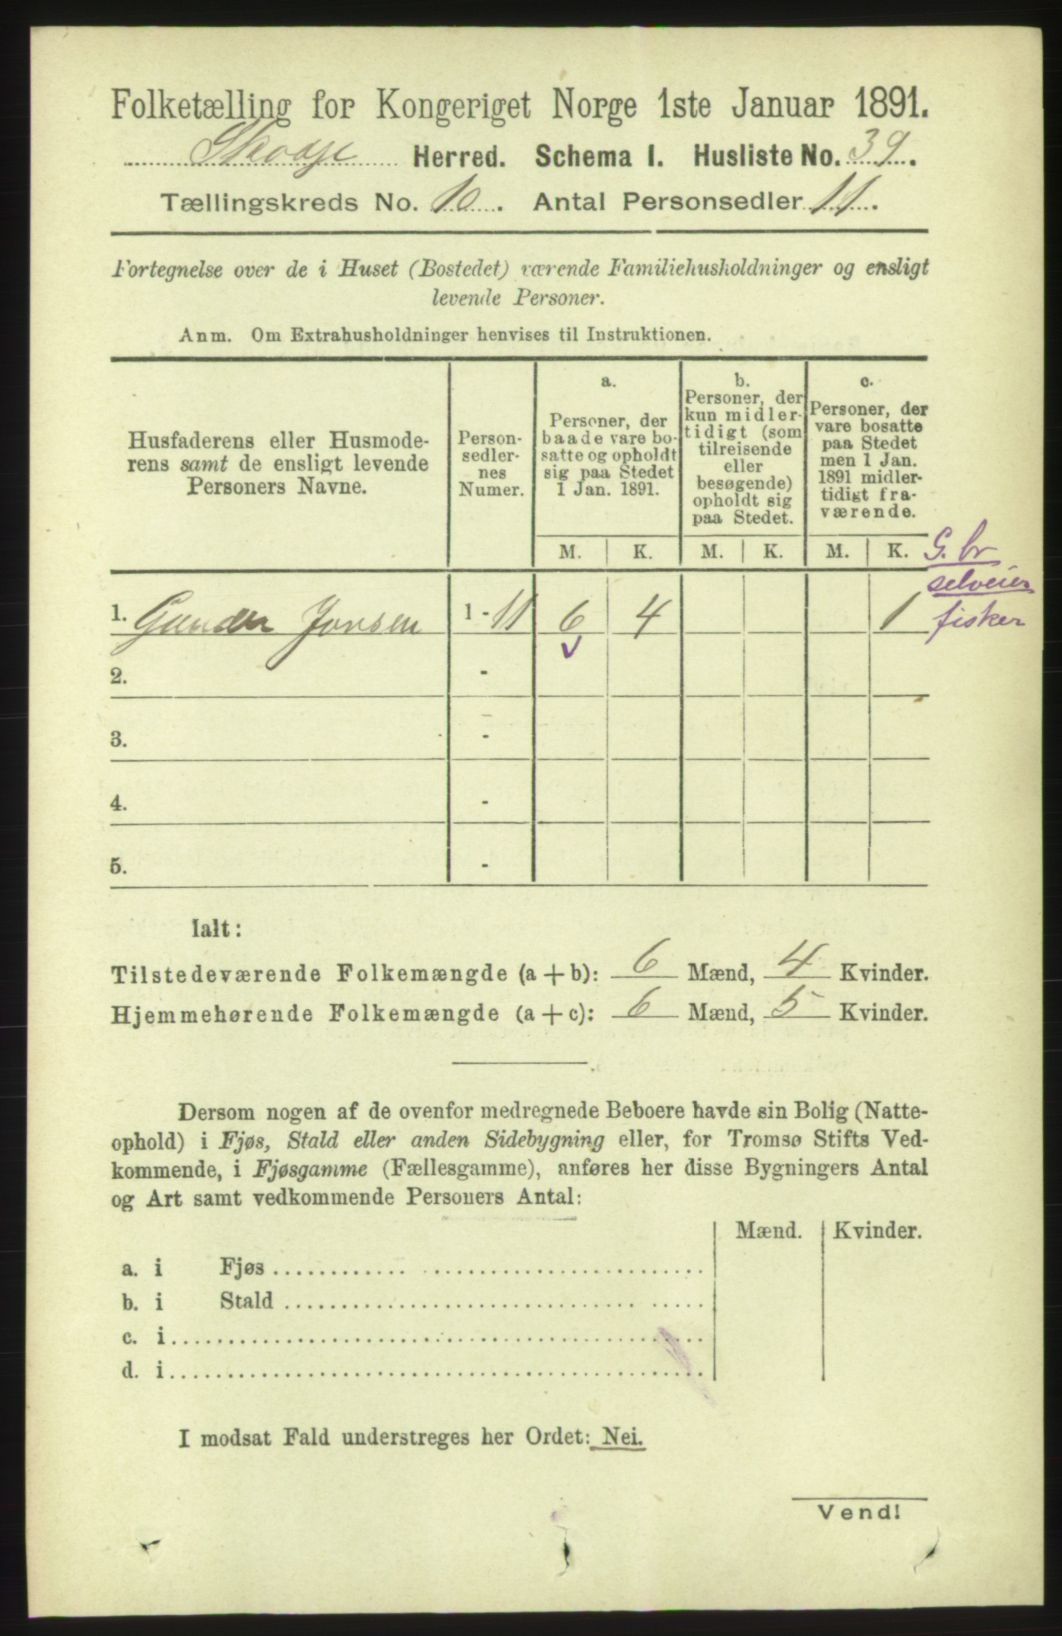 Folketælling for Kongeriget Norge 1ste Januar 1891.
Skodje Herred. Schema I. Husliste No. 39.
Tællingskreds No. 10. Antal Personsedler 11.
Fortegnelse over de i Huset (Bostedet) værende Familiehusholdninger og ensligt
levende Personer.
Anm. Om Extrahusholdninger henvises til Instruktionen.
Husfaderens eller Husmode-
rens samt de ensligt levende
Personers Navne.
Person-
sedler-
nes
Numer.
a.
Personer, der
baade vare bo-
satte og opholdt
sig paa Stedet
1 Jan. 1891.
b.
Personer, der
kun midler-
tidigt (som
tilreisende
eller
besøgende)
opholdt sig
paa Stedet.
c.
Personer, der
vare bosatte
paa Stedet
men 1 Jan.
1891 midler-
tidigt fra-
værende.
M. K. M. K. M. K.
G. br
selveier
fisker
1. Gunder Jonsen 1 - 11 6 4 1
2. -
3. -
4. -
5. -
Ialt:
Tilstedeværende Folkemængde (a + b): 6 Mænd, 4 Kvinder.
Hjemmehørende Folkemængde (a + c): 6 Mænd, 5 Kvinder.
Dersom nogen af de ovenfor medregnede Beboere havde sin Bolig (Natte-
ophold) i Fjøs, Stald eller anden Sidebygning eller, for Tromsø Stifts Ved-
kommende, i Fjøsgamme (Fællesgamme), anføres her disse Bygningers Antal
og Art samt vedkommende Personers Antal:
Mænd. Kvinder.
a. i Fjøs
b. i Stald
c. i
d. i
I modsat Fald understreges her Ordet: Nei.
Vend!